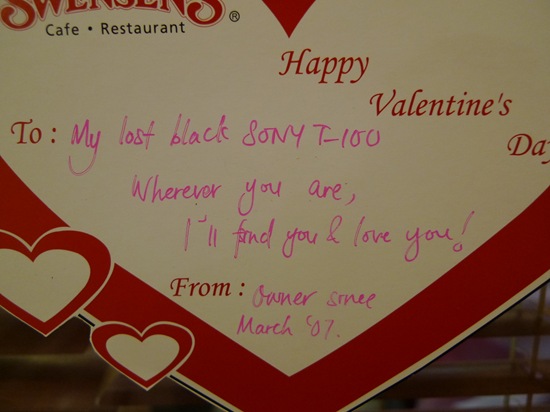 SWENSEN'S ®
Cafe • Restaurant
Happy
Valentine's
Day
To : My lost black SONY T-100
Wherever you are,
I'll find you & love you!
From : Owner since
March '07.